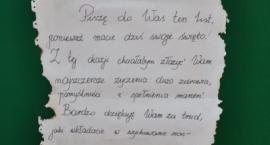 Piszę do Was ten list,
ponieważ macie dziś swoje święto.
Z tej okazji chciałabym złożyć Wam
najszczersze życzenia: dużo zdrowia,
pomyślności i spełnienia marzeń.
Bardzo dziękuję Wam za trud,
jaki wkładacie w wychowanie